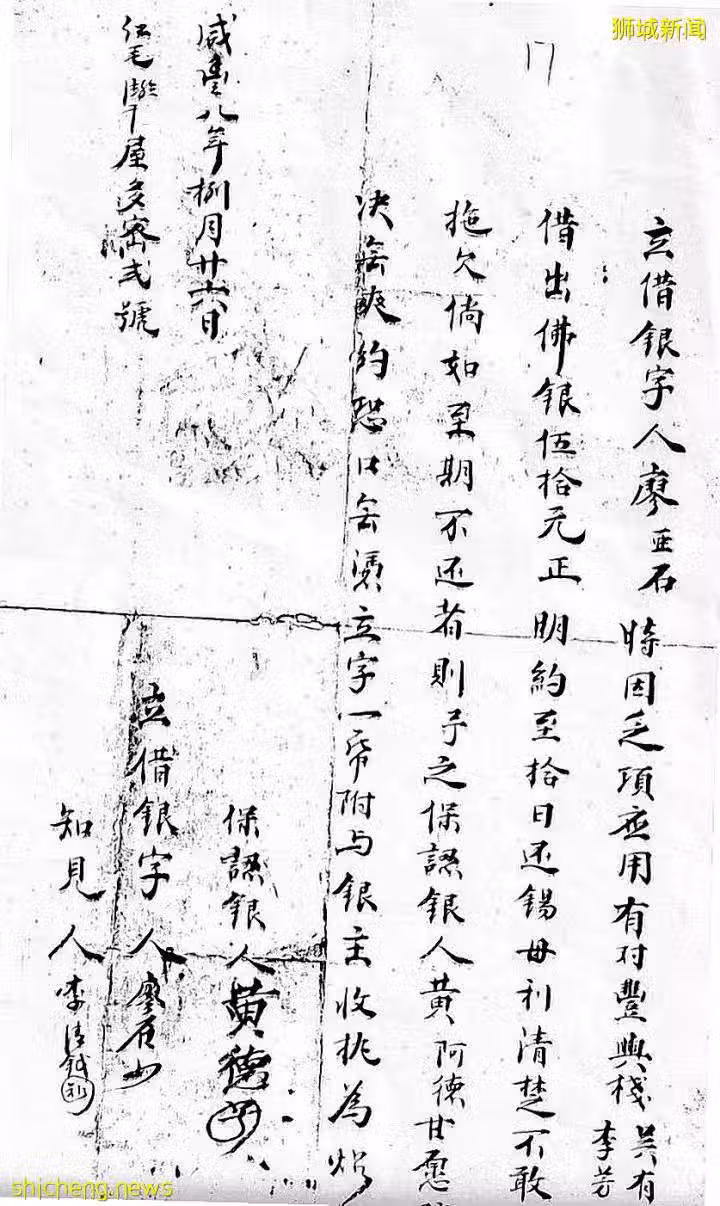 狮城新闻
17
立借銀字人廖亚石時因乏項应用有对豐興棧吴有李芳
借出佛銀伍拾元正明約至拾日还錫母利清楚不敢
拖欠倘如至期不还者則予之保認銀人黄阿德甘愿
决無爽約恐口無憑立字一帋附与銀主收执為炤
保認銀人黄德
立借銀字人廖石
知見人李
咸豐八年捌月廿六日
屋 弍號
shicheng.news